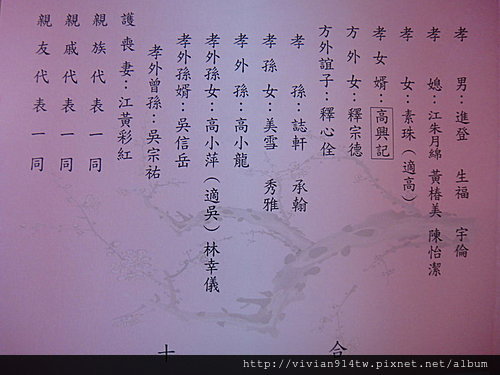 孝男：進登 生福 宇倫
孝媳：江朱月綿 黃椿美 陳怡潔
孝女：素珠（適高）
孝女婿：高興記
方外女：釋宗德
方外誼子：釋心佺
孝孫：誌軒 承翰
孝孫女：美雪 秀雅
孝外孫：高小龍
孝外孫女：高小萍（適吳）林幸儀
孝外孫婿：吳信岳
孝外曾孫：吳宗祐
護喪妻：江黃彩紅
親族代表一同
親戚代表一同
親友代表一同
http://vivian914tw.pixnet.net/album